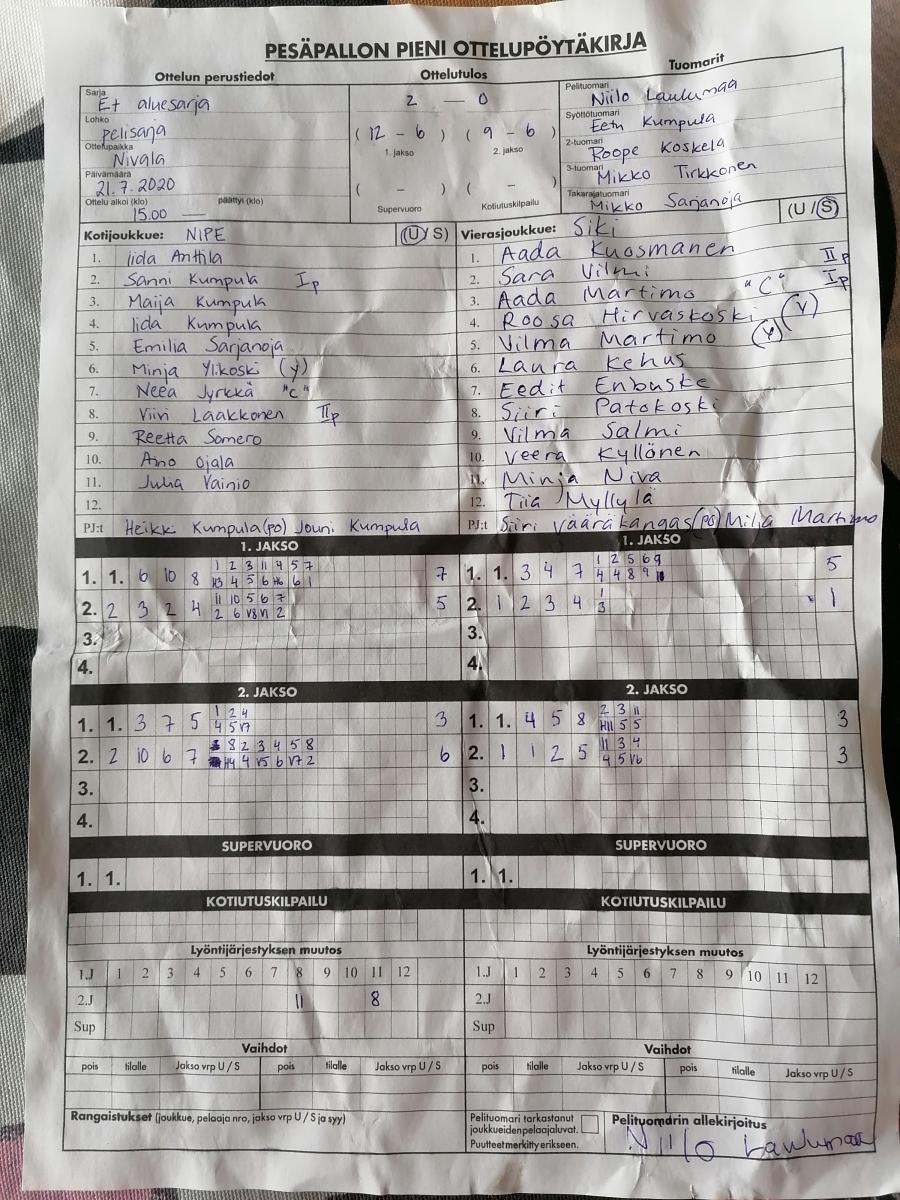 PESÄPALLON PIENI OTTELUPÖYTÄKIRJA
Ottelun perustiedot Ottelutulos Tuomarit
Sarja E+ aluesarja
Lohko pelisarja
Ottelupaikka Nivala
Päivämäärä 21.7.2020
Ottelu alkoi (klo) 15.00 — päättyi (klo)
2 — 0
( 12 - 6 ) ( 9 - 6 )
1. jakso 2. jakso
( - ) ( - )
Supervuoro Kotiutuskilpailu
Pelituomari Niilo Laulumaa
Syöttötuomari Eetu Kumpula
2-tuomari Roope Koskela
3-tuomari Mikko Tirkkonen
Takarajatuomari Mikko Sarjanoja
Kotijoukkue: NIPE (U/S)
1. Iida Anttila
2. Sanni Kumpula Ip
3. Maija Kumpula
4. Iida Kumpula
5. Emilia Sarjanoja
6. Minja Ylikoski (y)
7. Neea Jyrkkä "C"
8. Viivi Laakkonen IIp
9. Reetta Somero
10. Aino Ojala
11. Julia Vainio
12.
PJ:t Heikki Kumpula(po) Jouni Kumpula
Vierasjoukkue: Siki (U/S)
1. Aada Kuosmanen IIp
2. Sara Vilmi Ip
3. Aada Martimo "C"
4. Roosa Hirvaskoski (y)
5. Vilma Martimo (y)
6. Laura Kehus
7. Eedit Enbuske
8. Siiri Patokoski
9. Vilma Salmi
10. Veera Kyllönen
11. Minja Niva
12. Tiia Myllylä
PJ:t Siiri Vääräkangas(po) Milja Martimo
1. JAKSO
1. 1. 6 10 8 1 2 3 11 4 5 7 7
H3 4 5 6 H6 6 1
2. 2 3 2 4 11 10 5 6 7 5
2 6 V8 V1 2
3.
4.
1. JAKSO
1. 1. 3 4 7 1 2 5 6 9 5
4 4 8 9
2. 1 2 3 4 1 1
3
3.
4.
2. JAKSO
1. 1. 3 7 5 1 2 4 3
4 5 V7
2. 2 10 6 7 8 2 3 4 5 8 6
H4 4 V5 6 V7 2
3.
4.
2. JAKSO
1. 1. 4 5 8 2 3 11 3
H11 5 5
2. 1 1 2 5 11 3 4 3
4 5 V6
3.
4.
SUPERVUORO
1. 1.
SUPERVUORO
1. 1.
KOTIUTUSKILPAILU
KOTIUTUSKILPAILU
Lyöntijärjestyksen muutos
1.J 1 2 3 4 5 6 7 8 9 10 11 12
2.J 11 8
Sup
Lyöntijärjestyksen muutos
1.J 1 2 3 4 5 6 7 8 9 10 11 12
2.J
Sup
Vaihdot
pois tilalle Jakso vrp U / S pois tilalle Jakso vrp U / S
Vaihdot
pois tilalle Jakso vrp U / S pois tilalle Jakso vrp U / S
Rangaistukset (joukkue, pelaaja nro, jakso vrp U / S ja syy)
Pelituomari tarkastanut
joukkueidenpelaajaluvat.
Puutteetmerkittyerikseen.
Pelituomarin allekirjoitus
Niilo Laulumaa